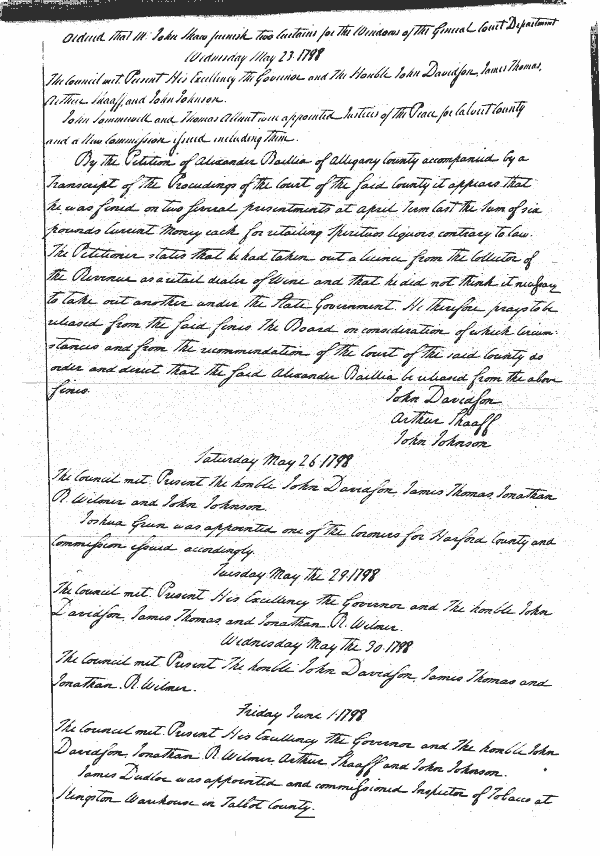 Ordered that Mr. John Shaw furnish two Curtains for the Windows of the General Court Department
Wednesday May 23. 1798
The Council met. Present His Excellency the Governor and the Honble John Davidson, James Thomas,
Arthur Shaaff, and John Johnson.
John Sommervell and Thomas were appointed Justices of the Peace for Calvert County
and a New Commission issued including them.
By the Petition of Alexander Baillia of Allegany County accompanied by a
Transcript of the Proceedings of the Court of the said County it appears that
he was fined on two several presentments at April Term last the sum of six
pounds Current Money each for retailing Spirituos liquors contrary to law.
The Petitioner states that he had taken out a licence from the Collector of
the Revenue as a retail dealer of Wine and that he did not think it necessary
to take out another under the State Government. He therefore prays to be
released from the said fines. The Board on consideration of which Circum-
stances and from the recommendation of the Court of the said County do
order and direct that the said Alexander Baillia be released from the above
fines.
John Davidson
Arthur Shaaff
John Johnson
Saturday May 26. 1798
The Council met. Present The honble John Davidson, James Thomas, Jonathan
R. Wilmer and John Johnson.
Joshua Green was appointed one of the Coroners for Harford County and
Commission issued accordingly.
Tuesday May the 29. 1798
The Council met. Present His Excellency the Governor and The honble John
Davidson, James Thomas, and Jonathan R. Wilmer.
Wednesday May the 30. 1798
The Council met Present The honble John Davidson, James Thomas and
Jonathan R. Wilmer.
Friday June 1. 1798
The Council met. Present His Excellency the Governor and The honble John
Davidson, Jonathan R. Wilmer, Arthur Shaaff and John Johnson.
James Dudloe was appointed and commissioned Inspector of Tobacco at
Kingston Warehouse in Talbot County.